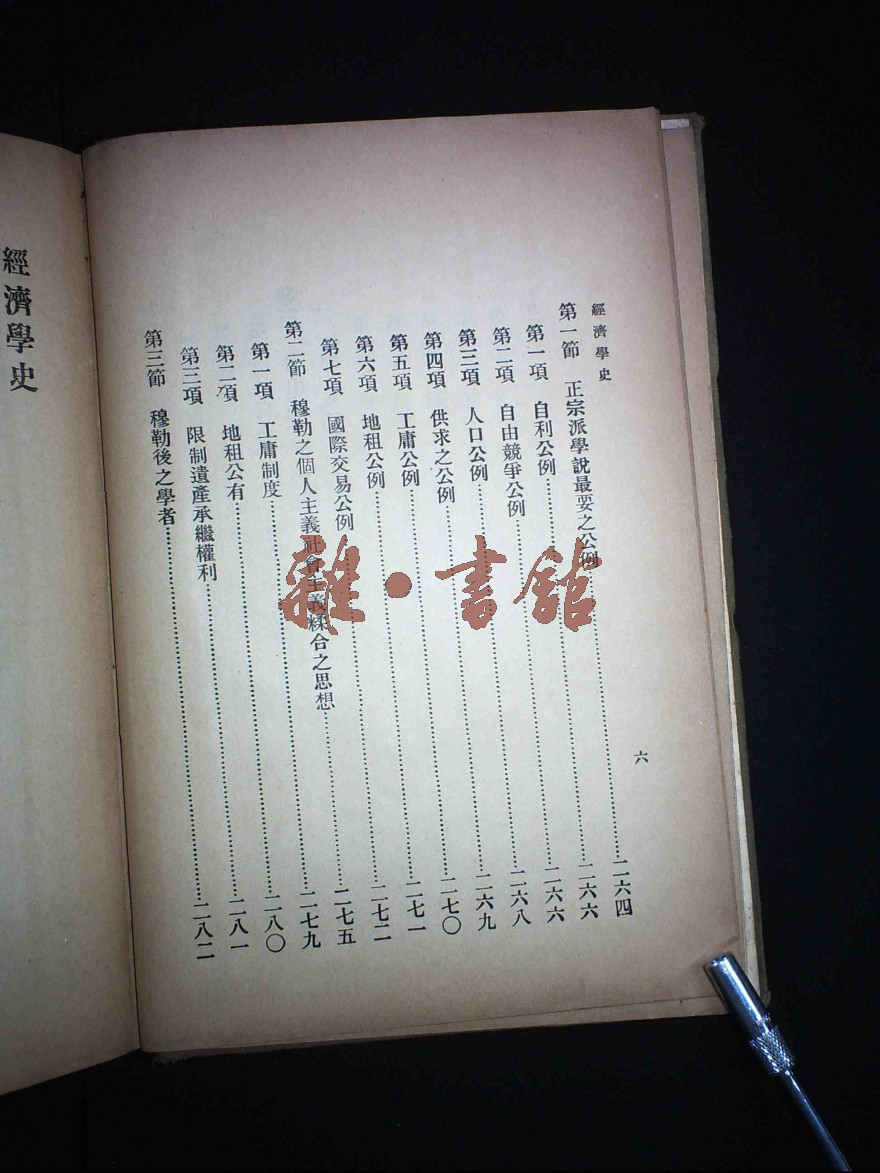 經濟學史
第一節　正宗派學說最要之公例……二六四
第一項　自利公例……二六六
第二項　自由競爭公例……二六六
第三項　人口公例……二六八
第四項　供求之公例……二六九
第五項　工庸公例……二七〇
第六項　地租公例……二七一
第七項　國際交易公例……二七二
第二節　穆勒之個人主義社會主義糅合之思想……二七五
第一項　工庸制度……二七九
第二項　地租公有……二八〇
第三項　限制遺產承繼權利……二八一
第三節　穆勒後之學者……二八二
六
經濟學史
雜·書館